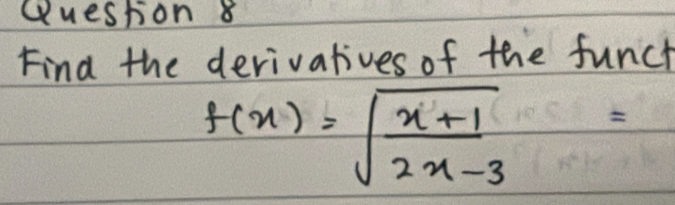 Question 8
Find the derivatives of the funct
f(x) = √((x+1)/(2x-3)) =